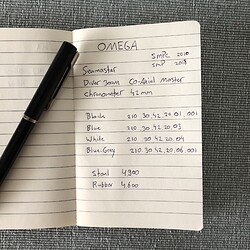 OMEGA
SMPc 2010
SMP 2018
Seamaster
Diver 300m Co-Axial Master
Chronometer 42mm
Black 210.30.42.20.01.001
Blue 210.30.42.20.03
White 210.30.42.20.04
Blue-Grey 210.30.42.20.06.001
Steel 4900
Rubber 4600